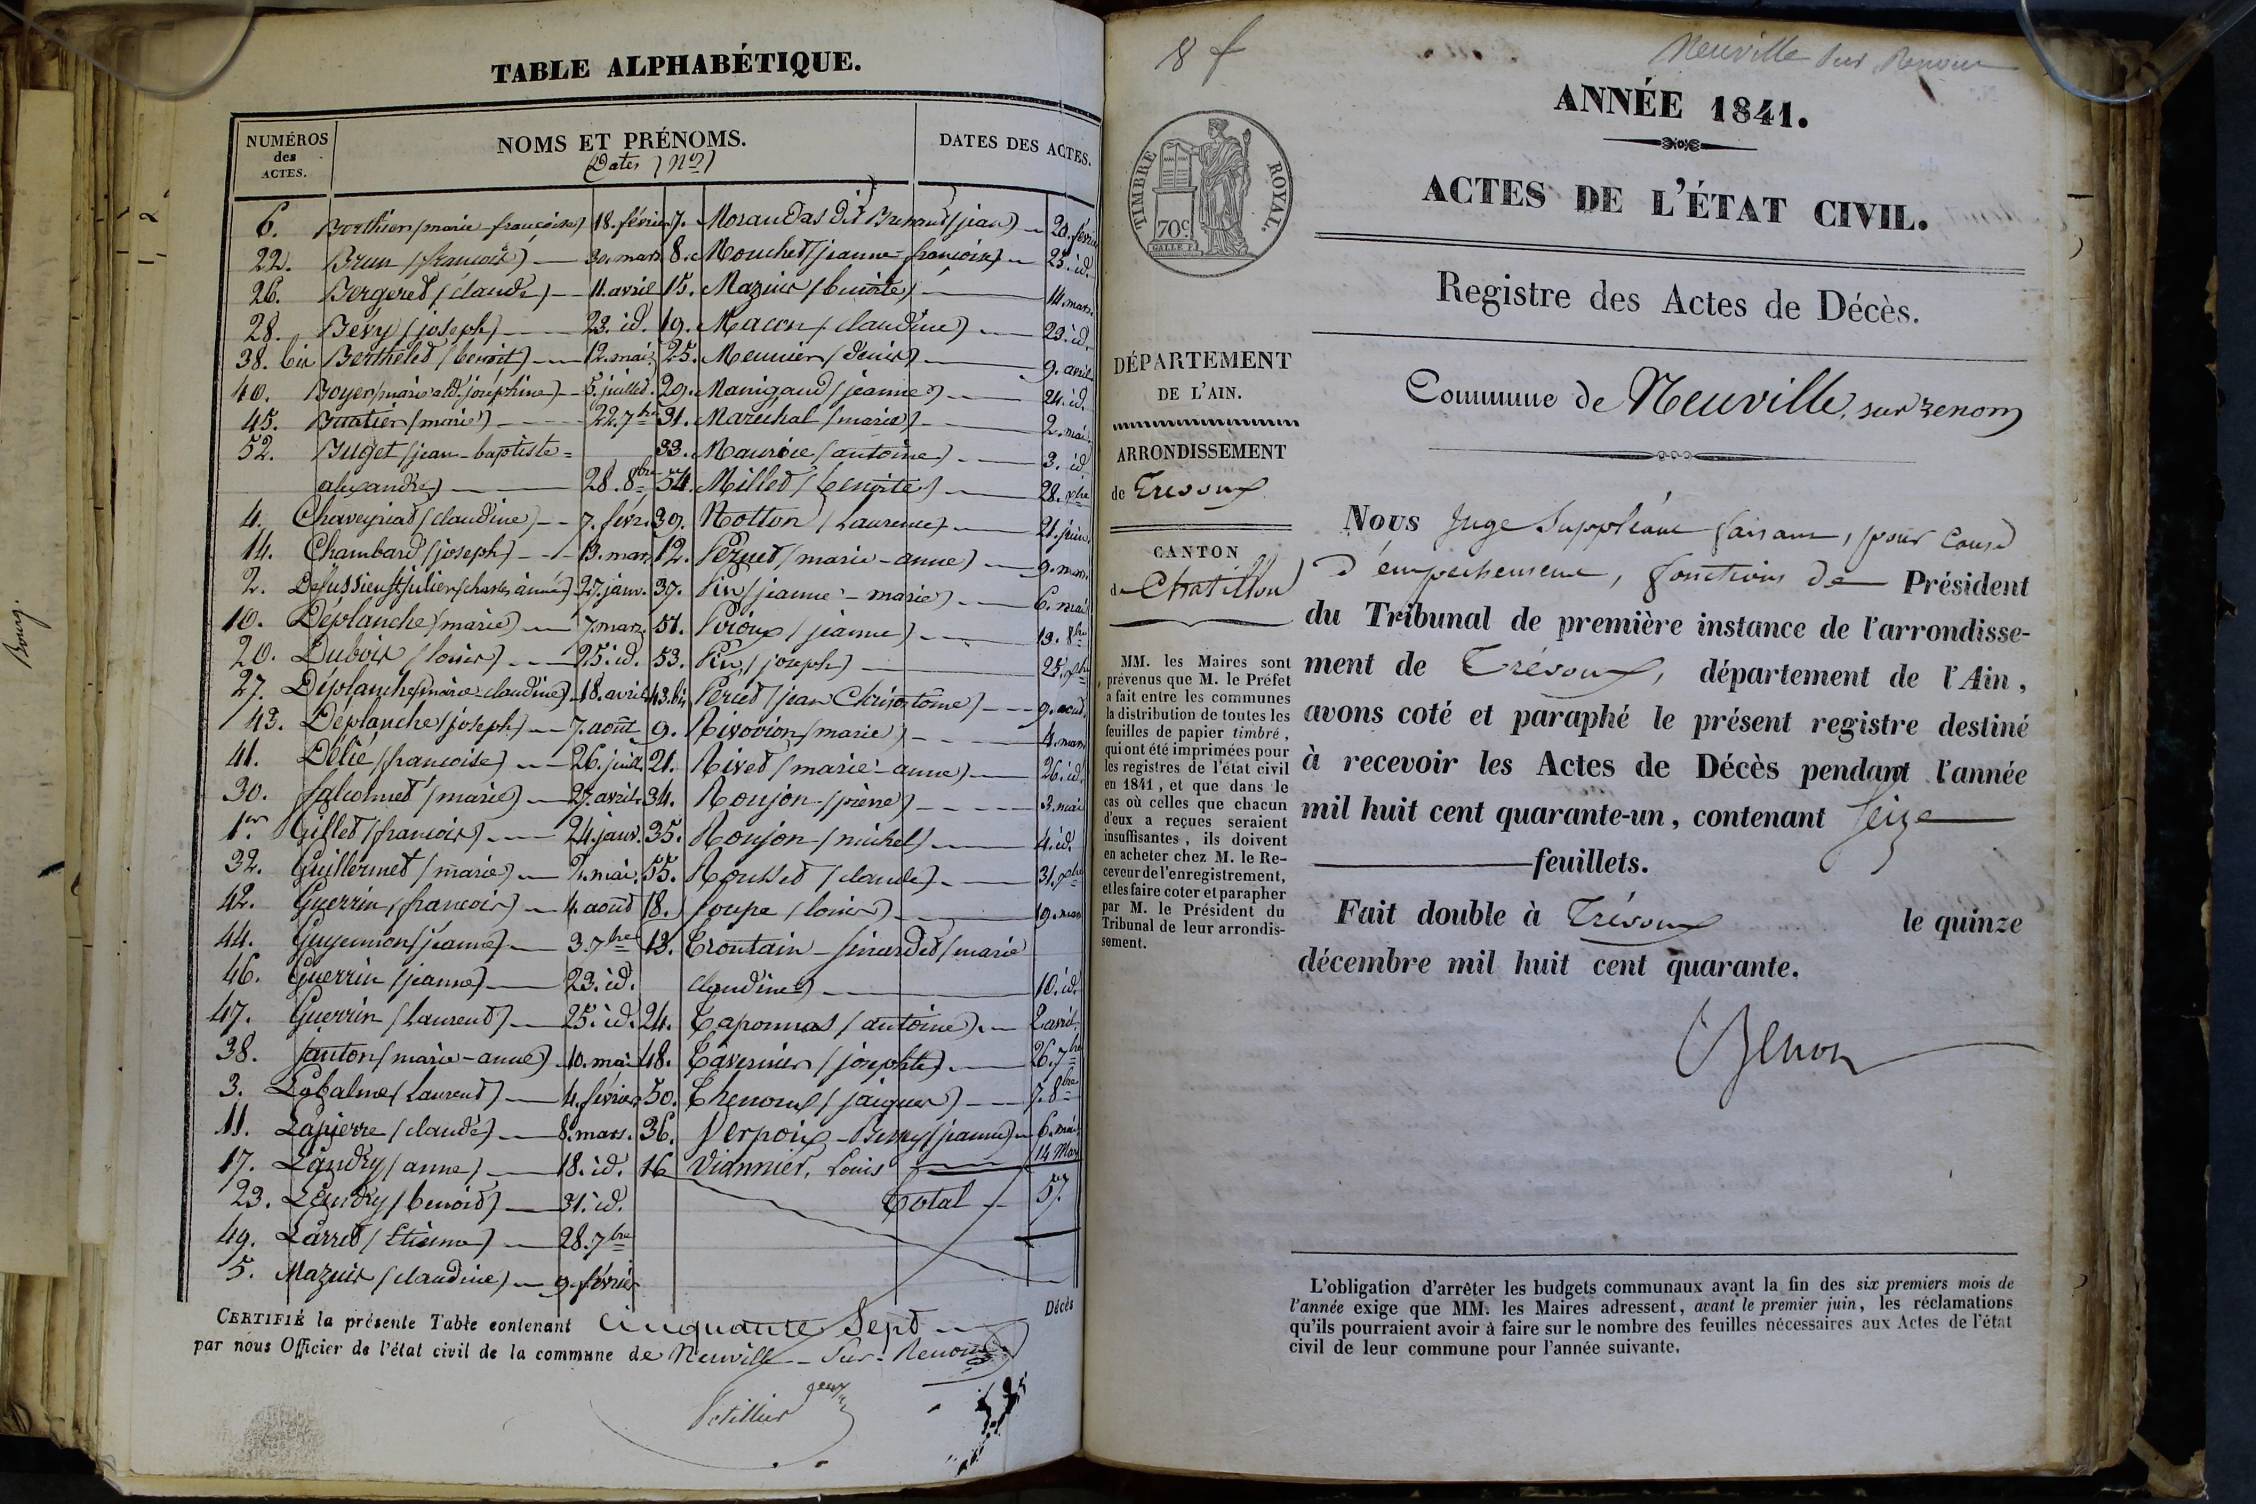 TABLE ALPHABÉTIQUE.
NUMÉROS des ACTES.
NOMS ET PRÉNOMS.
DATES DES ACTES.
6. Berthier (marie françoise) 18. février
22. Brun (françois) 30. mars
26. Bergeret (claude) 11. avril
28. Bévy (joseph) 23. id.
38. bis Berthelet (benoit) 12. mai
40. Boyer 5. juillet
45. (marie) 22. 7bre
52. Buget (jean-baptiste=
alexandre) 28. 8bre
4. Chaveyriat (claudine) 7. févr.
14. Chambard (joseph) 13. mars
2. 27. janv.
10. Déplanche (marie) 7. mars
20. Dubois (louis) 25. id.
27. Déplanche (marie claudine) 18. avril
43. Déplanche (joseph) 7. août
41. Délie (françoise) 26. juil.
30. falconnet (marie) 27. avril
1er Gillet (françois) 24. janv.
32. Guillermet (marie) 2. mai
42. Guerrin (françois) 4. août
44. Guyennon (jeanne) 3. 7bre
46. Guerrin (jeanne) 23. id.
47. Guerrin (laurent) 25. id.
38. Janton (marie-anne) 10. mai
3. Labalme (laurent) 4. février
11. Lapierre (claude) 8. mars.
17. Landry (anne) 18. id.
23. Landry (benoit) 31. id.
49. Larret (Etienne) 28. 7bre
5. Mazuir (claudine) 9. février
7. Morandas dit (jean) 20. févri
8. Mouchet (jeanne françoise) 25. id.
15. Mazuir (benoite) 14. mars
19. Macon (claudine) 23. id.
25. Meunier (denis) 9. avril
29. Manigand (jeanne) 24. id.
31. Maréchal (marie) 2. mai
33. Maurice (antoine) 3. id.
54. Millet (benoite) 28. xbre
39. Notton (laurence) 21. juin
12. (marie-anne) 9. mars
37. Pin (jeanne-marie) 6. mai
51. Piroux (jeanne) 13. 8bre
53. Pin (joseph) 25. xbre
43. bis (jean Chrisostome) 9. août
9. (marie) 4. mars
21. Rivet (marie-anne) 26. id.
34. Roujon (pierre) 3. mai
35. Roujon (michel) 4. id.
55. Rousset (claude) 31. xbre
18. Soupe (louis) 19. mars
13. Troutain-Sinardet (marie
claudine) 10. id.
24. Taponnas (antoine) 2 avril
48. Tavernier (josephte) 26. 7bre
50. Thenoux (jacques) 7. 8bre
36. Verpoix- (jeanne) 6. mai
16 Viannier, Louis 14 Mars
Total 57.
Décès
CERTIFIÉ la présente Table contenant Cinquante Sept
par nous Officier de l'état civil de la commune de Neuville-sur-Renom
Bourg.
8 f
Neuville sur Renom
TIMBRE ROYAL.
70c
GALLE F.
ANNÉE 1841.
ACTES DE L'ÉTAT CIVIL.
Registre des Actes de Décès.
Commune de Neuville, sur renom
DÉPARTEMENT
DE L'AIN.
ARRONDISSEMENT
de Trevoux
CANTON
de Chatillon
MM. les Maires sont
prévenus que M. le Préfet
a fait entre les communes
la distribution de toutes les
feuilles de papier timbré,
qui ont été imprimées pour
les registres de l'état civil
en 1841, et que dans le
cas où celles que chacun
d'eux a reçues seraient
insuffisantes, ils doivent
en acheter chez M. le Re-
ceveur de l'enregistrement,
et les faire coter et parapher
par M. le Président du
Tribunal de leur arrondis-
sement.
Nous Juge Suppléant faisant, pour cause
d'empechement, fonctions de Président
du Tribunal de première instance de l'arrondisse-
ment de Trévoux, département de l'Ain,
avons coté et paraphé le présent registre destiné
à recevoir les Actes de Décès pendant l'année
mil huit cent quarante-un, contenant Seize
feuillets.
Fait double à Trévoux le quinze
décembre mil huit cent quarante.
L'obligation d'arrêter les budgets communaux avant la fin des six premiers mois de
l'année exige que MM. les Maires adressent, avant le premier juin, les réclamations
qu'ils pourraient avoir à faire sur le nombre des feuilles nécessaires aux Actes de l'état
civil de leur commune pour l'année suivante.